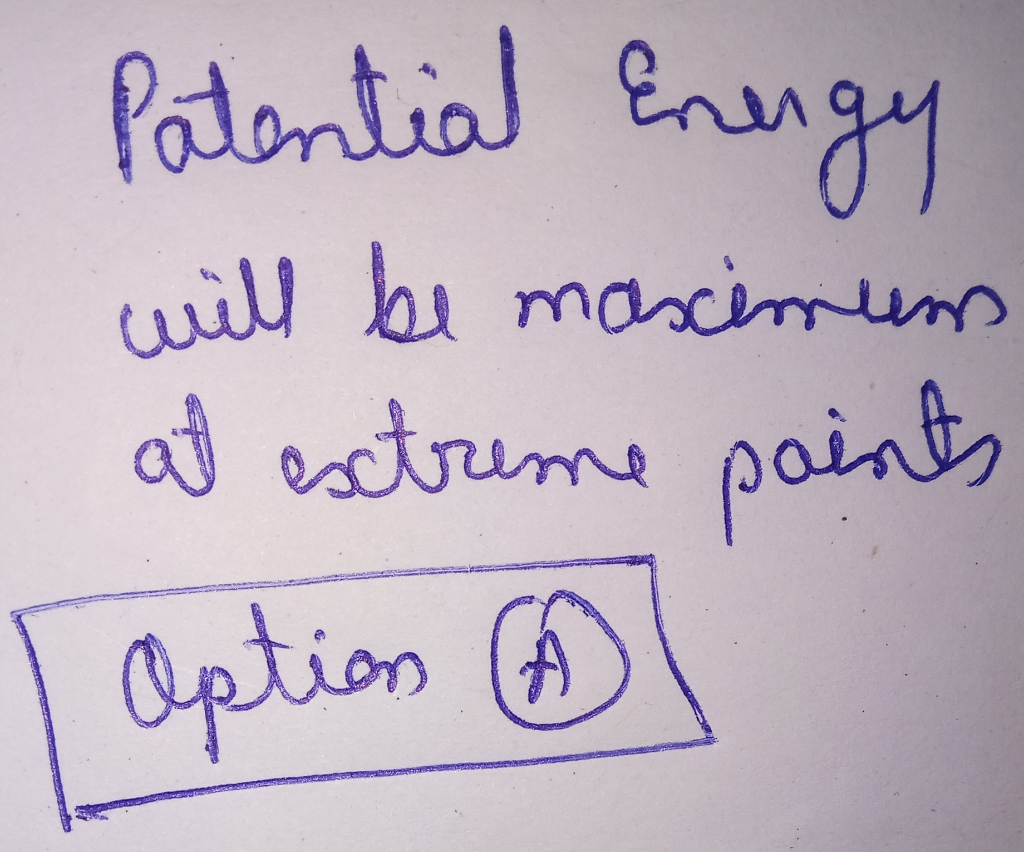 Potential Energy
will be maximum
at extreme points
Option A